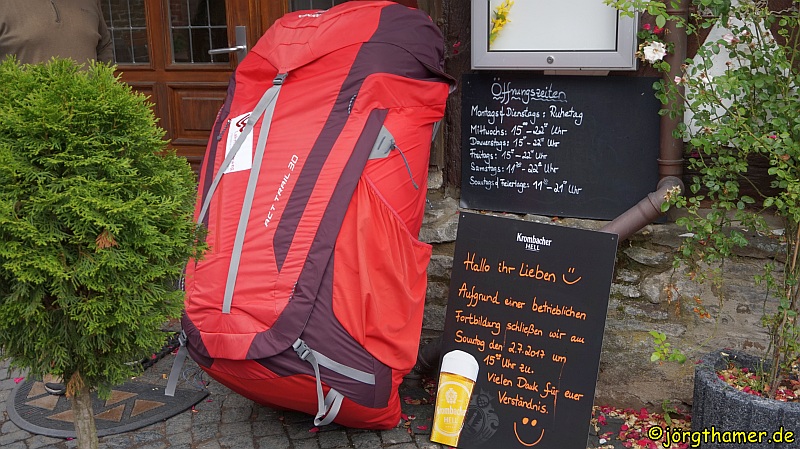 Öffnungszeiten
Montags & Dienstags: Ruhetag
Mittwochs: 15°° - 22°° Uhr
Donnerstags: 15°° - 22°° Uhr
Freitags: 15°° - 22°° Uhr
Samstags: 11³⁰ - 22°° Uhr
Sonntags & Feiertage: 11³⁰ - 21°° Uhr
ACT TRAIL 30
Krombacher
HELL
Hallo ihr Lieben
Aufgrund einer betrieblichen
Fortbildung schließen wir am
Sonntag den 2.7.2017 um
15°° Uhr zu.
Vielen Dank für euer
Verständnis.
Krombacher
HELL
©jörgthamer.de